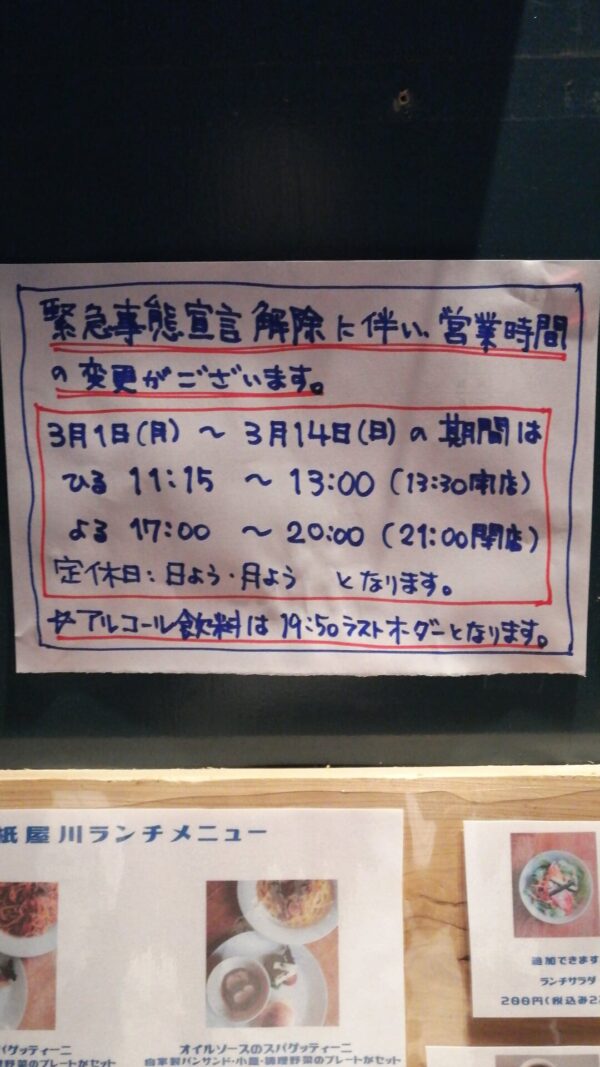 緊急事態宣言解除に伴い、営業時間
の変更がございます。
3月1日(月) 〜 3月14日(日) の期間は
ひる 11:15 〜 13:00 (13:30閉店)
よる 17:00 〜 20:00 (21:00閉店)
定休日:日よう・月よう となります。
☆アルコール飲料は 19:50ラストオーダーとなります。
紙屋川ランチメニュー
追加できます
ランチサラダ
200円(税込み2
パゲッティーニ
野菜のプレートがセット
オイルソースのスパゲッティーニ
自家製パンサンド・小皿・調理野菜のプレートがセット